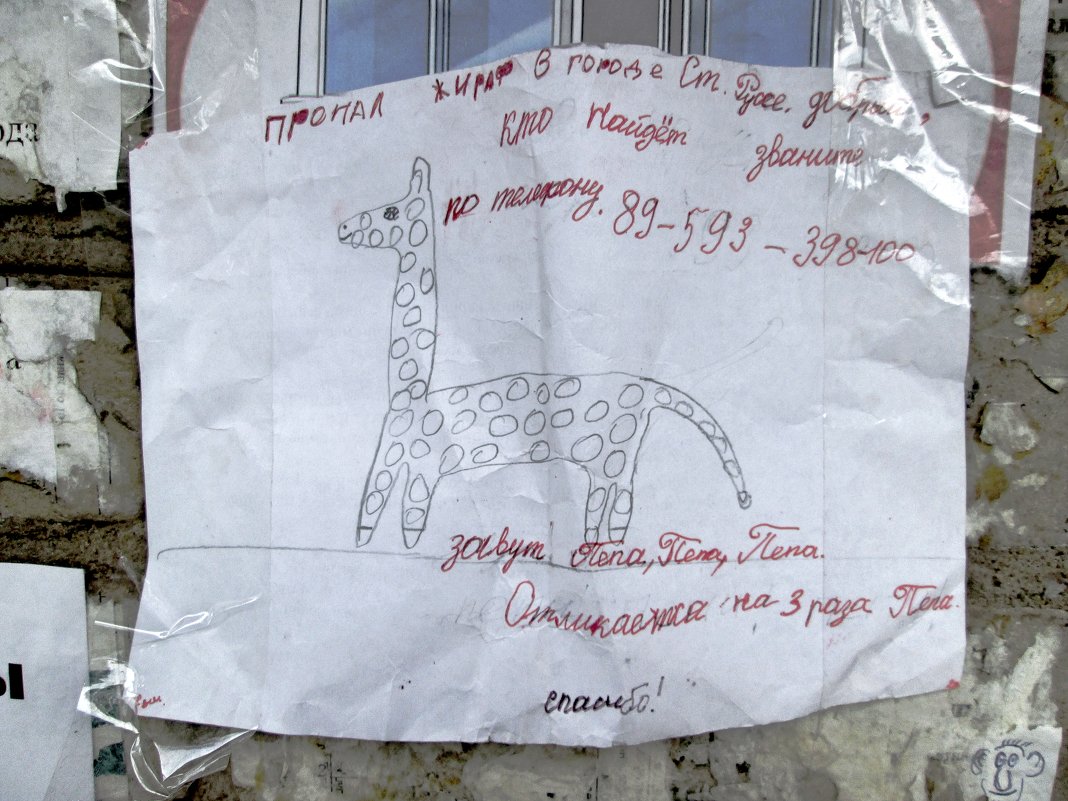 ПРОПАЛ ЖИРАФ В городе Ст. Русе. добрый,
кто найдёт званите
по телефону. 89-593-398-100
завут Пепа, Пепа, Пепа.
Отликаежка на 3 раза Пепа.
спасибо!
ода
а
Ы